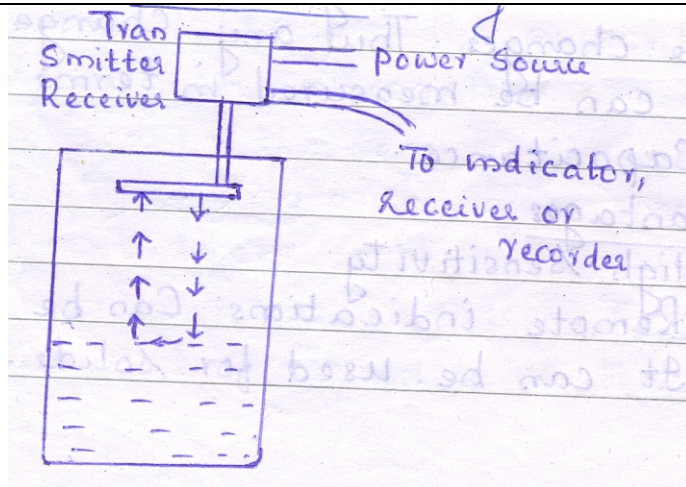 Tran
Smitter
Receiver
Power Source
To indicator,
receiver or
recorder